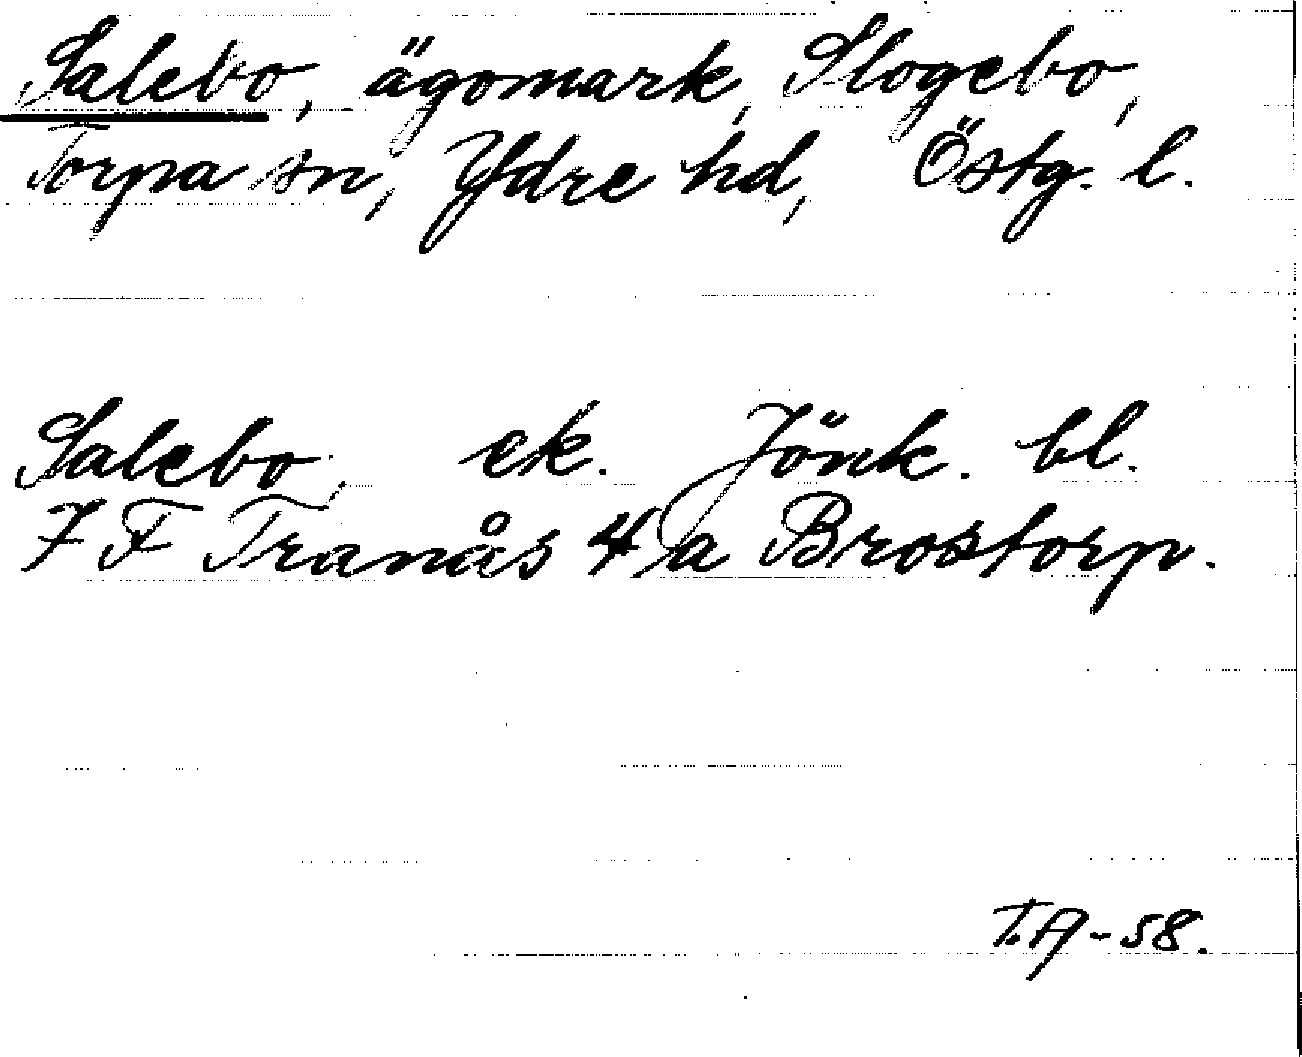 Salebo, ägomark, Slogebo,
Torpa sn, Ydre hd, Östg. l.
Salebo, ek. Jönk. bl.
7 F Tranås 4 a Brostorp.
T.A-58.